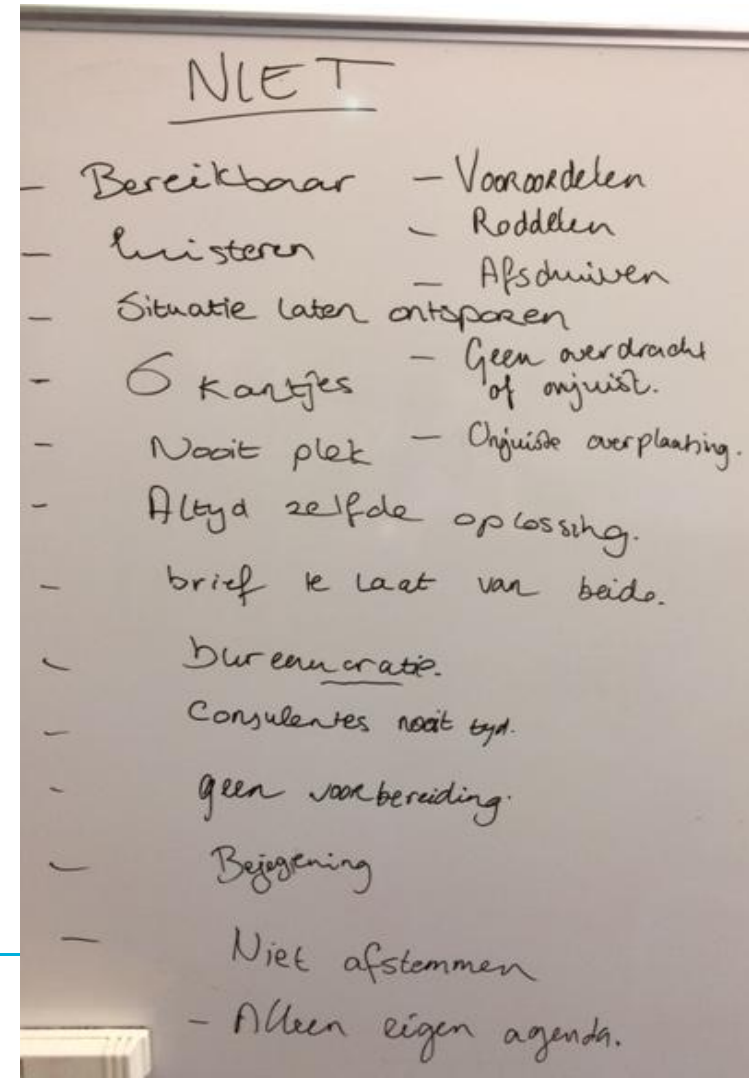 NIET
- Bereikbaar
- luisteren
- Situatie laten ontsporen
- 6 kantjes
- Nooit plek
- Altyd zelfde oplossing.
- brief te laat van beide.
- bureaucratie.
- Consulentes nooit tyd.
- geen voorbereiding.
- Bejegening
- Niet afstemmen
- Alleen eigen agenda.
- Vooroordelen
- Roddelen
- Afschuiven
- Geen overdracht
of onjuist.
- Onjuiste overplaatsing.